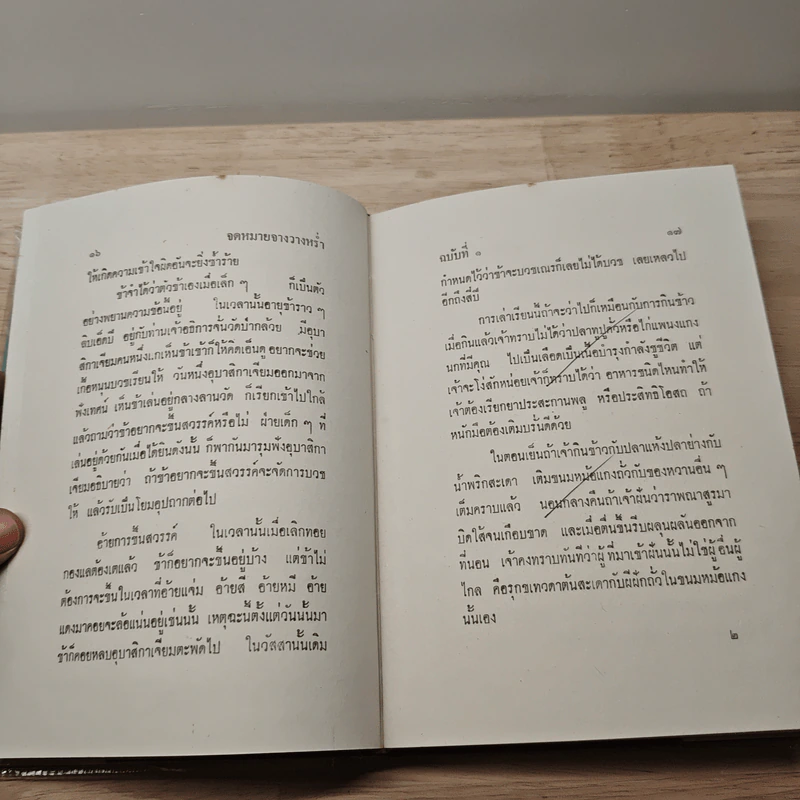 ๑๖ จดหมายจางวางหร่ำ
ให้เกิดความเข้าใจผิดอันจะยิ่งซ้ำร้าย
ข้าจำได้ว่าตัวข้าเองเมื่อเล็ก ๆ ก็เป็นตัว
อย่างพยานความข้อนี้อยู่ ในเวลานั้นอายุข้าราว ๆ
สิบเอ็ดปี อยู่กับท่านเจ้าอธิการจั่นวัดป่ากล้วย มีอุบา
สิกาเจียมคนหนึ่งแกเห็นข้าเข้าก็ให้คิดเอ็นดู อยากจะช่วย
เกื้อหนุนบวชเรียนให้ วันหนึ่งอุบาสิกาเจียมออกมาจาก
ฟังเทศน์ เห็นข้าเล่นอยู่กลางลานวัด ก็เรียกเข้าไปใกล้
แล้วถามว่าข้าอยากจะขึ้นสวรรค์หรือไม่ ฝ่ายเด็ก ๆ ที่
เล่นอยู่ด้วยกันเมื่อได้ยินดังนั้น ก็พากันมารุมฟังอุบาสิกา
เจียมอธิบายว่า ถ้าข้าอยากจะขึ้นสวรรค์จะจัดการบวช
ให้ แล้วรับเป็นโยมอุปถากต่อไป
อ้ายการขึ้นสวรรค์ ในเวลานั้นเมื่อเลิกทอย
กองแลต้องเตแล้ว ข้าก็อยากจะขึ้นอยู่บ้าง แต่ข้าไม่
ต้องการจะขึ้นในเวลาที่อ้ายแจ่ม อ้ายสี อ้ายหมี อ้าย
แดงมาคอยจะล้อแน่นอยู่เช่นนั้น เหตุฉะนี้ตั้งแต่วันนั้นมา
ข้าก็คอยหลบอุบาสิกาเจียมตะพัดไป ในวัสสานั้นเดิม
ฉบับที่ ๑ ๑๗
กำหนดไว้ว่าข้าจะบวชเณรก็เลยไม่ได้บวช เสยเหลวไป
อีกถึงสี่ปี
การเล่าเรียนนี้ถ้าจะว่าไปก็เหมือนกับการกินข้าว
เมื่อกินแล้วเจ้าทราบไม่ได้ว่าปลาทูปูคั่วหรือไก่แพนงแกง
นกที่มีคุณ ไปเป็นเลือดเป็นเนื้อบำรุงกำลังชูชีวิต แต่
เจ้าจะโง่สักหน่อยเจ้าก็ทราบได้ว่า อาหารชนิดไหนทำให้
เจ้าต้องเรียกยาประสะกานพลู หรือประสิทธิโอสถ ถ้า
หนักมือต้องเติมบรั่นดีด้วย
ในตอนเย็นถ้าเจ้ากินข้าวกับปลาแห้งปลาย่างกับ
น้ำพริกสะเดา เติมขนมหม้อแกงถั่วกับของหวานอื่น ๆ
เต็มคราบแล้ว นอนกลางคืนถ้าเจ้าฝันว่าราพณาสูรมา
บิดไส้จนเกือบขาด และเมื่อตื่นขึ้นรีบผลุนผลันออกจาก
ที่นอน เจ้าคงทราบทันทีว่าผู้ที่มาเข้าฝันนั้นไม่ใช่ผู้อื่นผู้
ไกล คือรุกขเทวดาต้นสะเดากับผีผักถั่วในขนมหม้อแกง
นั้นเอง
๒